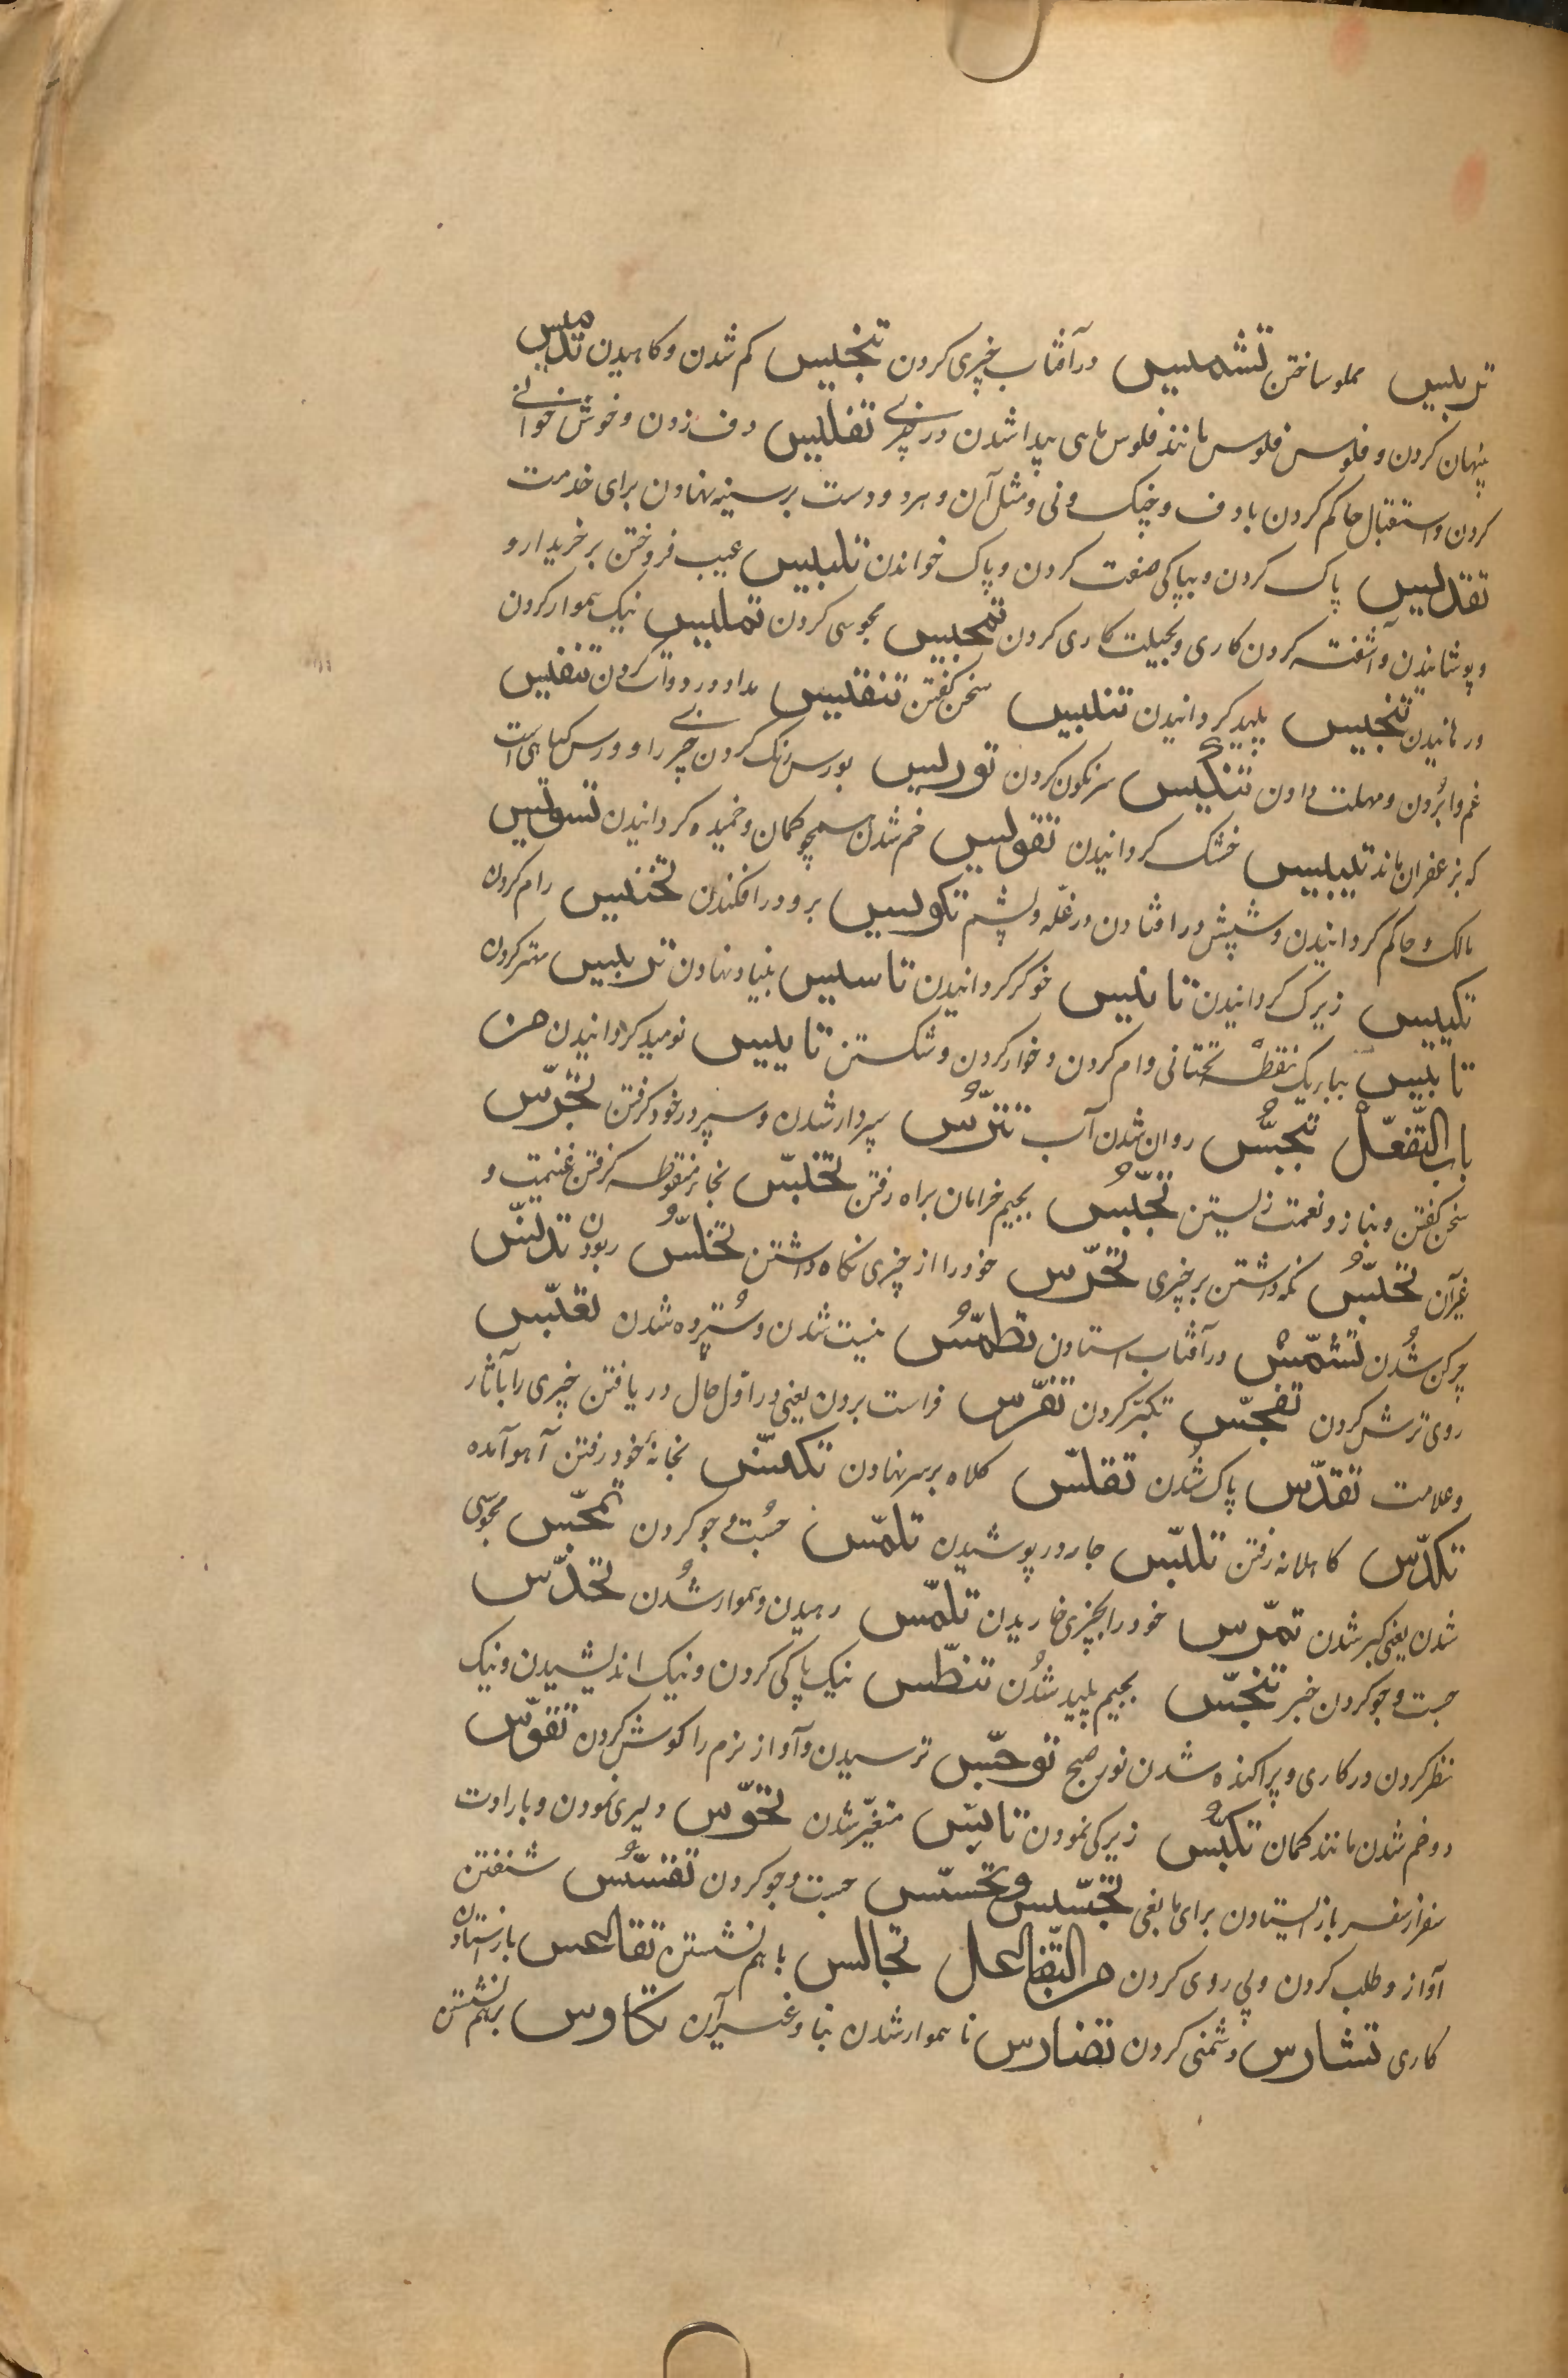 تربیس مملو ساختن تشمیس در آفتاب چیزی کردن تنجیس کم شدن و کاهیدن تدمیس
پنهان کردن و فلوس فلوس مانند فلوس ماهی پیدا شدن در چیزے تقلیس دف زدن و خوش خوانے
کردن و استقبال حاکم کردن با دف و چنک و نی و مثل آن و هر دو دست بر سینه نهادن برای خدمت
تقدیس پاک کردن و بپاکی صفت کردن و پاک خواندن تلبیس عیب فروختن بر خریدار و
و پوشانیدن و آشفته کردن کاری و بحیلت کاری کردن تمجیس مجوسی کردن تملیس نیک هموار کردن
و رمانیدن تنجیس پلید کردانیدن تنبیس سخن کفتن تنقیس مداد در دوات کردن تنفیس
غم وا بُردن و مهلت دادن تنکیس سرنکون کردن توریس بورس رنک کردن چیزے را و ورس کیاهی است
که بزعفران ماند تیبیس خشک کردانیدن تقویس خم شدن همچو کمان و خمیده کردانیدن تسویس
مالک و حاکم کردانیدن و شپش در افتادن در غلّه و پشم تکویس بر و در افکندن تخنیس رام کردن
تکییس زیرک کردانیدن تانیس خوکر کردانیدن تاسیس بنیاد نهادن تربیس مهتر کردن
تابیس ببا بیک نقطه تحتانی وام کردن و خوار کردن و شکستن تاییس نومید کردانیدن من
باب التّفعّل تبجّس روان شدن آب تترّس سپردار شدن و سپر در خود کرفتن تجرّس
سخن کفتن و بناز و نعمت زیستن تجبّس بجیم خرامان براه رفتن تخبّس بخا منقوطه کرفتن غنیمت و
غیر آن تحبّس نکه داشتن بر چیزی تحرّس خود را از چیزی نکاه داشتن تخلّس ربودن تدنّس
چرکن شُدن تشمّس در آفتاب استادن تطمّس نیست شدن و ستُرده شدن تعبّس
روی ترش کردن تفجّس تکبّر کردن تفرّس فراست بردن یعنی در اوّل حال دریافتن چیزی را بآثار
و علامت تقدّس پاک شُدن تقلّس کلاه بر سر نهادن تکنّس بخانهٔ خود رفتن آهو آمده
تکدّس کاهلانه رفتن تلبّس جا در پوشیدن تلمّس جُست و جو کردن تمجّس مجوسی
شدن یعنی کبر شدن تمرّس خود را بچیزی خاریدن تملّس رهیدن و هموار شُدن تحدّس
جست و جو کردن خبر تنجّس بجیم پلید شُدن تنطّس نیک پاکی کردن و نیک اندیشیدن و نیک
نظر کردن در کاری و پراکنده شدن نور صبح توجّس ترسیدن و آواز نرم را کوش کردن تقوّس
دو خم شدن مانند کمان تکیّس زیرکی نمودن تاسّس متغیّر شدن تحوّس دلیری نمودن و با ارادت
سفر از سفر باز ایستادن برای مانعی تجسّس و تحسّس جست و جو کردن تقسّس شنفتن
آواز و طلب کردن و پی روی کردن من التّفاعل تجالس باهم نشستن تقاعس باز استادن
کاری تشارس دشمنی کردن تضارس ناهموار شدن بنا و غیر آن تکاوس بر هم نشستن